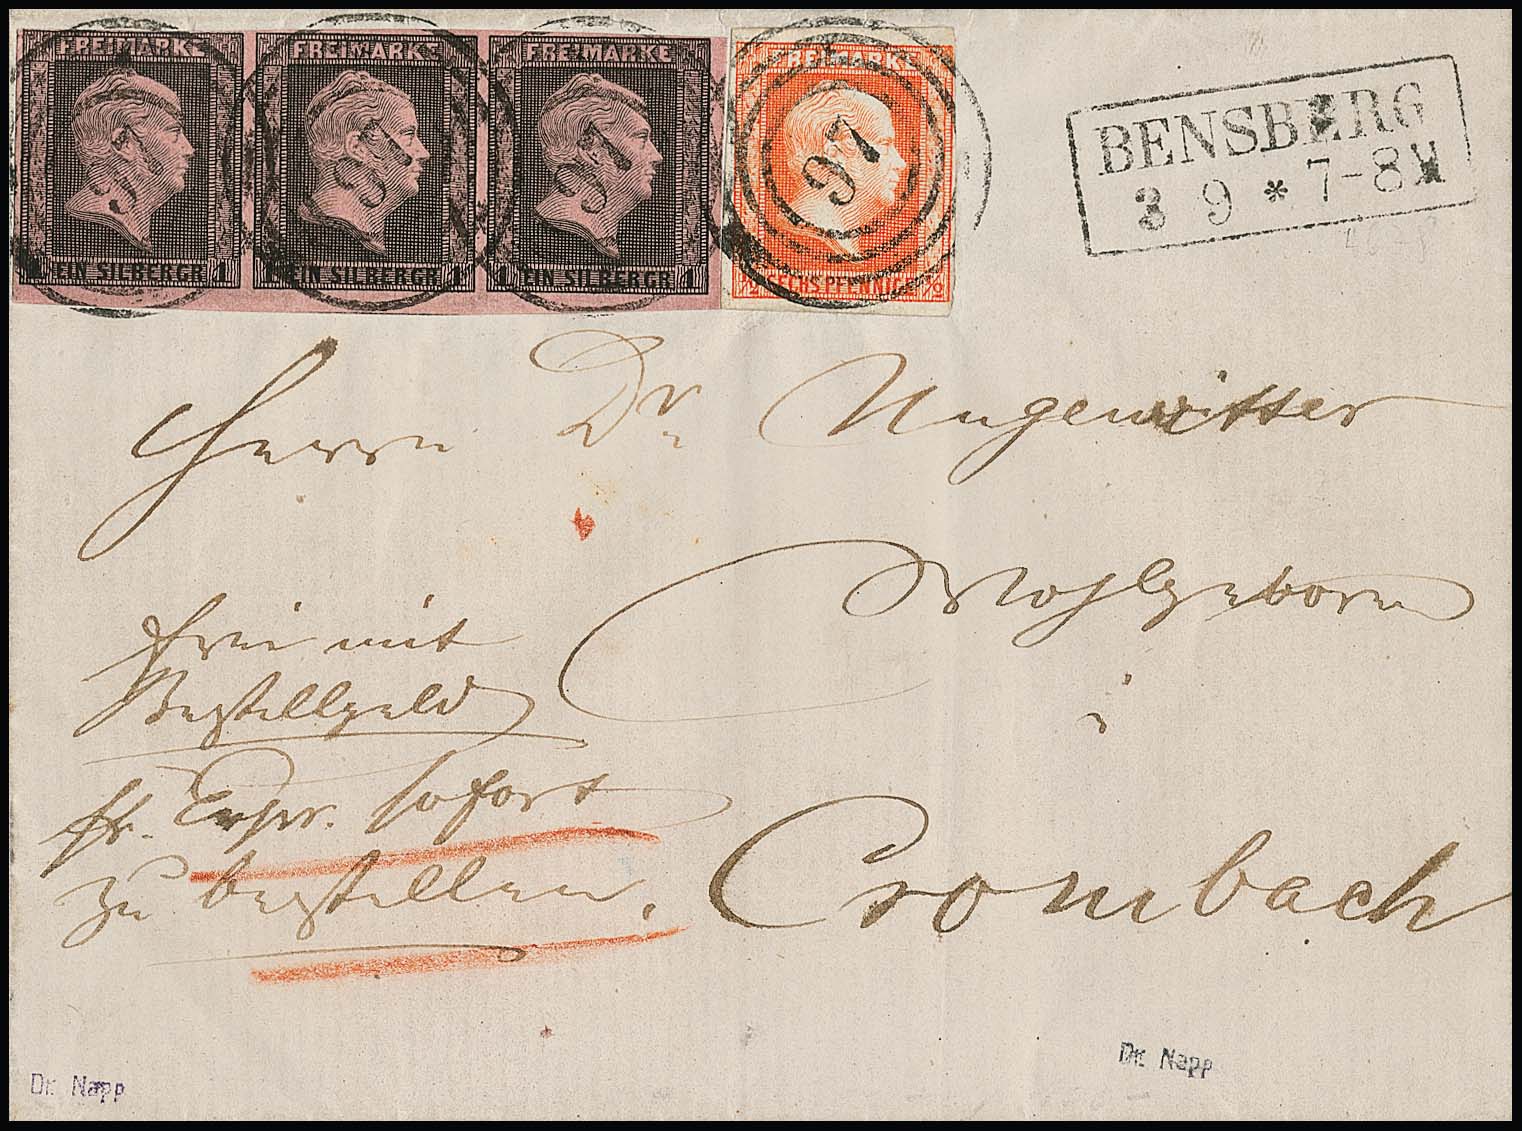 FREIMARKE FREIMARKE FREIMARKE FREIMARKE
97 97 97 97
1 EIN SILBERGR 1 1 EIN SILBERGR 1 1 EIN SILBERGR 1 1/2 SECHS PFENNIGE 1/2
BENSBERG
3 9 * 7-8 M
Herrn Dr Ungewitter
Wohlgeboren
frei mit
Bestellgeld
i
fr. Expr. sofort
zu bestellen.
Crombach
Dr. Napp
Dr. Napp